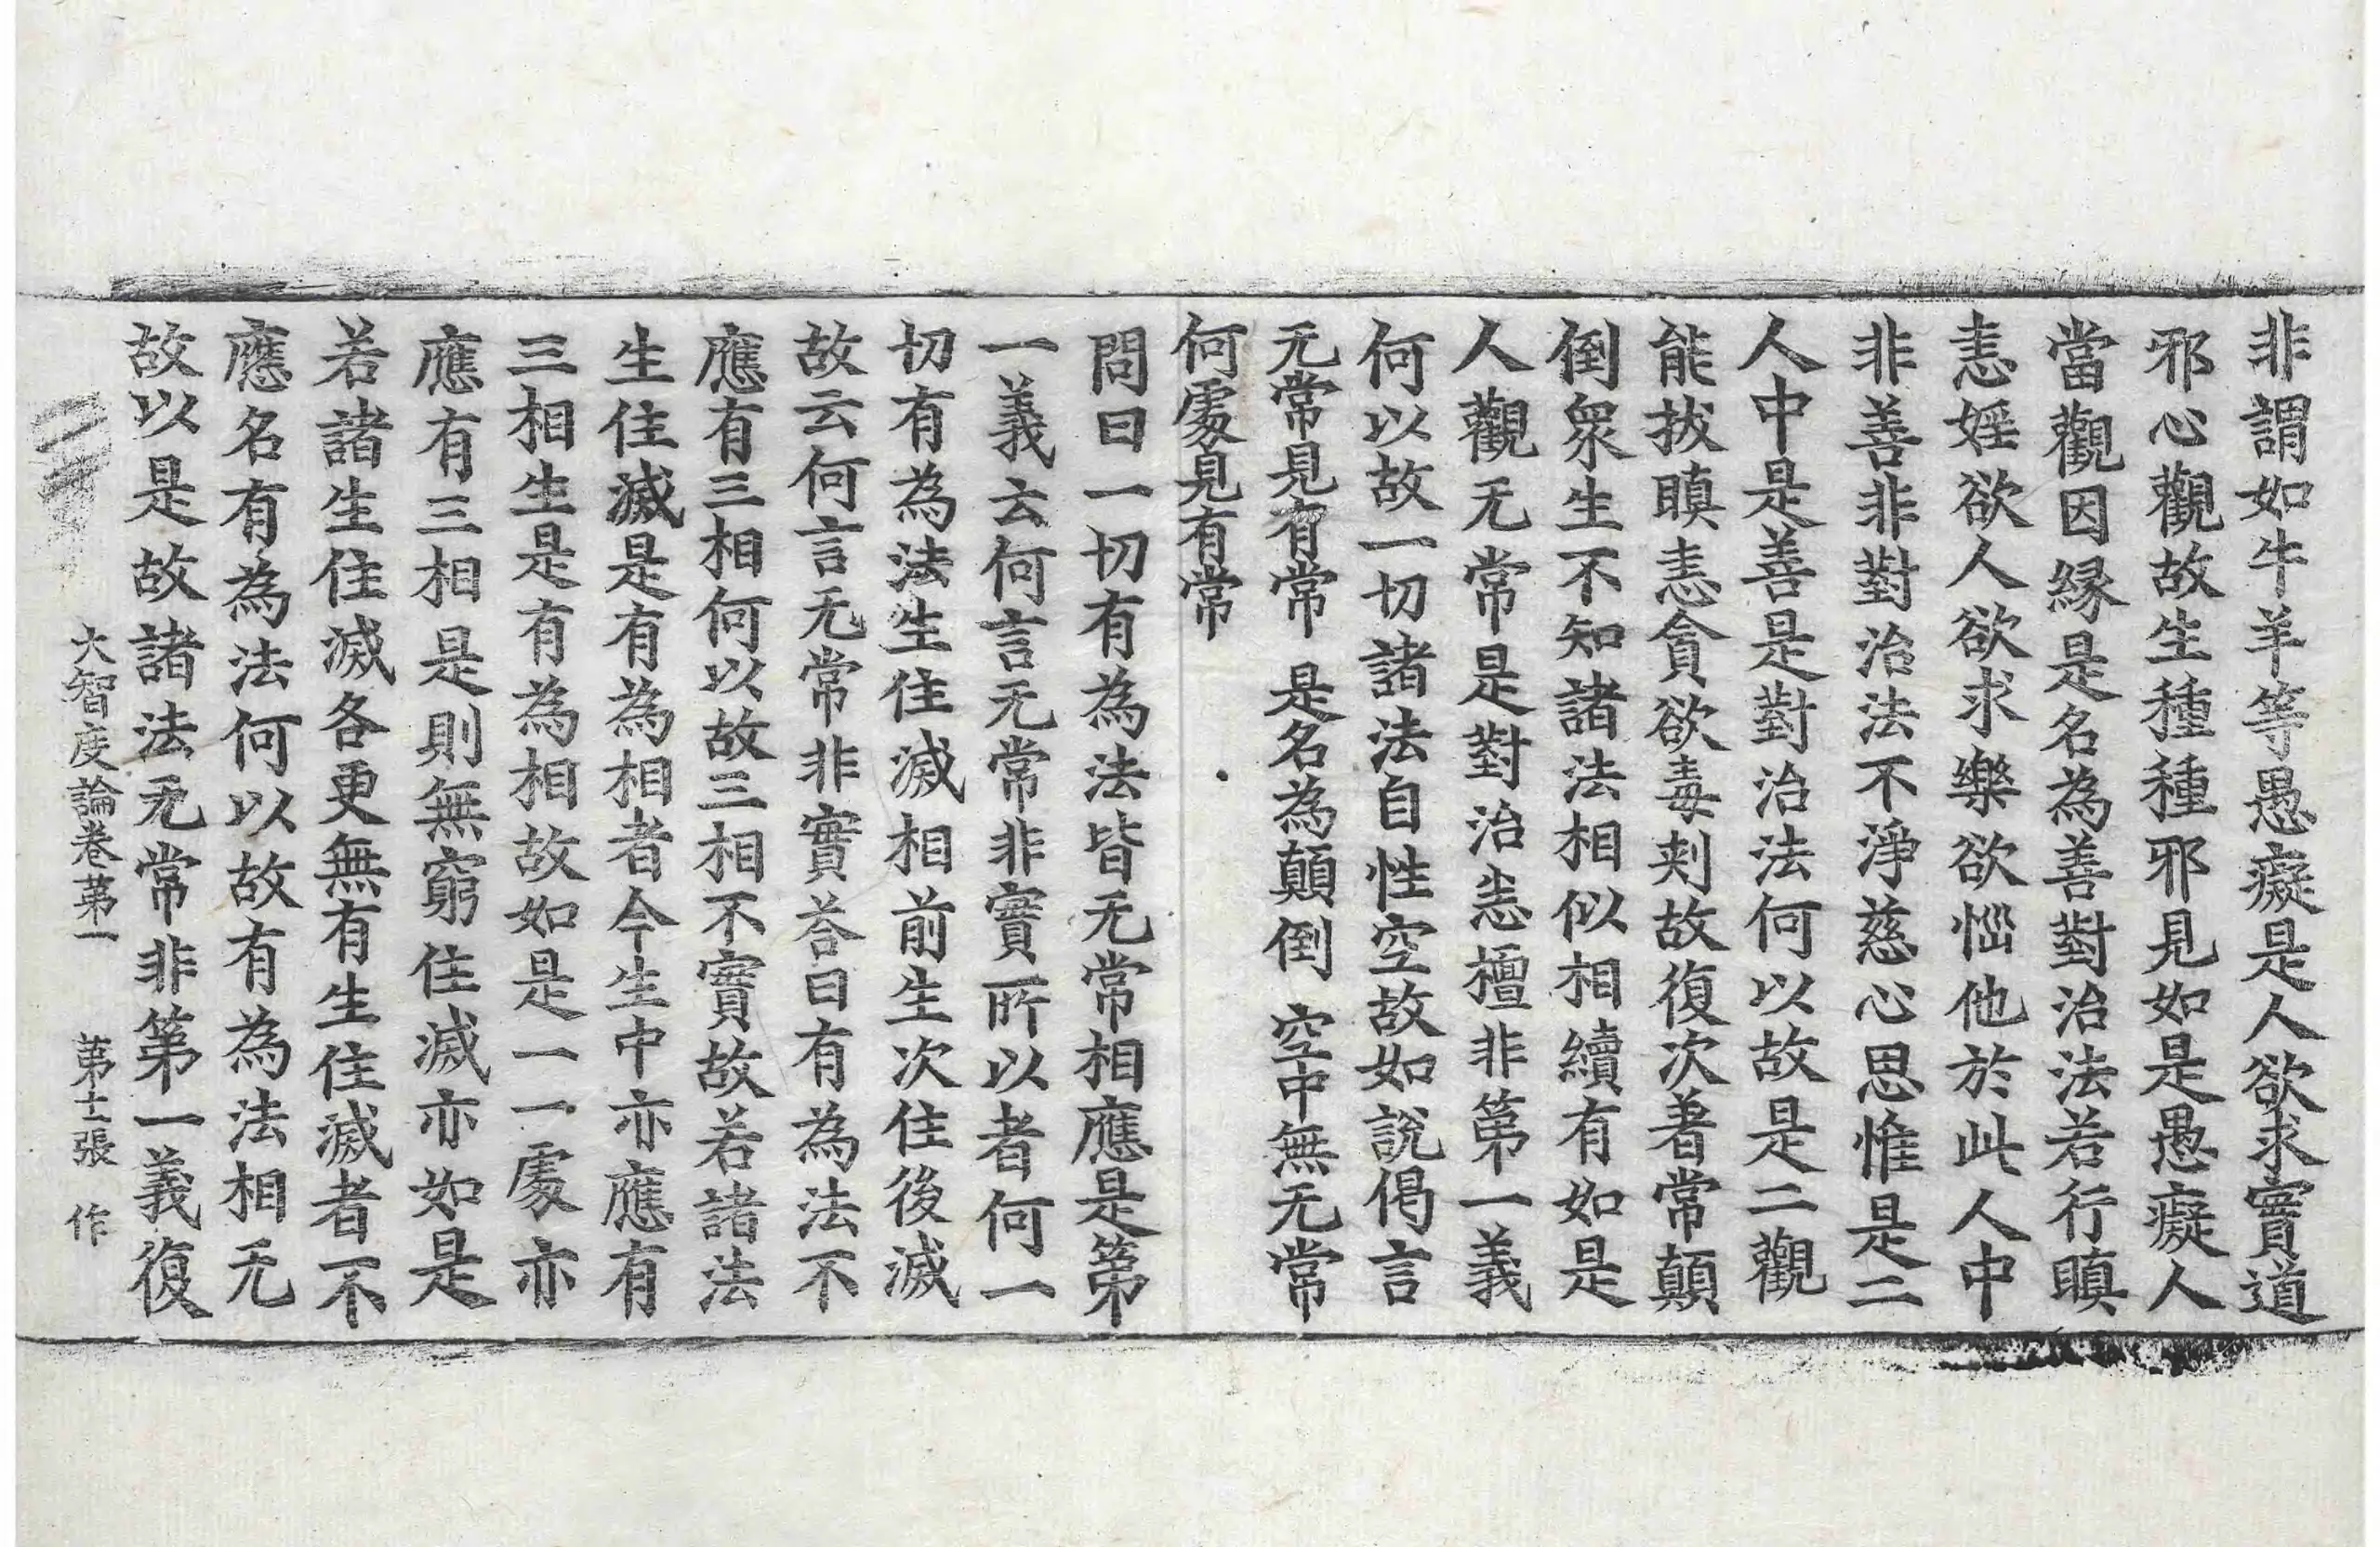 非謂如牛羊等愚癡是人欲求實道
邪心觀故生種種邪見如是愚癡人
當觀因縁是名為善對治法若行瞋
恚婬欲人欲求樂欲惱他於此人中
非善非對治法不淨慈心思惟是二
人中是善是對治法何以故是二觀
能拔瞋恚貪欲毒刾故復次著常顛
倒衆生不知諸法相似相續有如是
人觀无常是對治悉檀非第一義
何以故一切諸法自性空故如說偈言
无常見有常 是名為顛倒 空中無无常
何處見有常
問曰一切有為法皆无常相應是第
一義云何言无常非實所以者何一
切有為法生住滅相前生次住後滅
故云何言无常非實荅曰有為法不
應有三相何以故三相不實故若諸法
生住滅是有為相者今生中亦應有
三相生是有為相故如是一一處亦
應有三相是則無窮住滅亦如是
若諸生住滅各更無有生住滅者不
應名有為法何以故有為法相无
故以是故諸法无常非第一義復
大智度論卷第一 第十二張 作